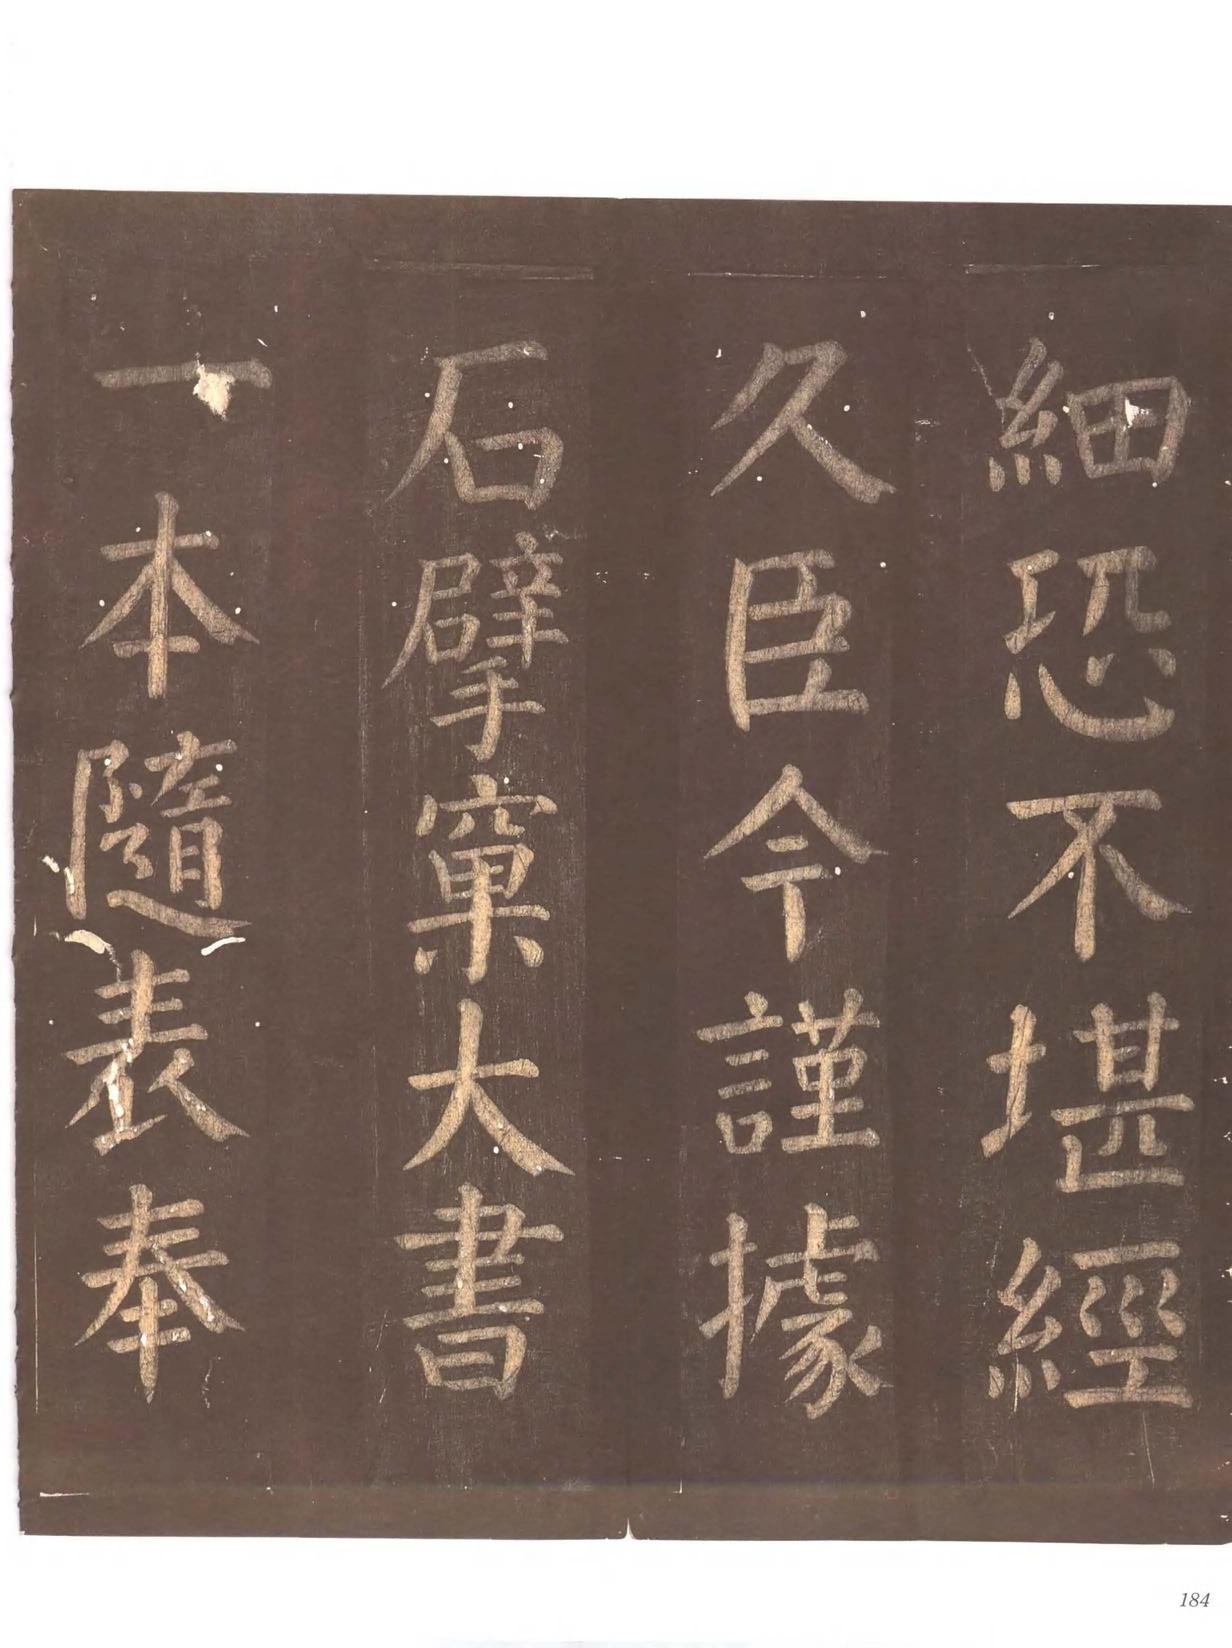 細恐不堪經
久臣今謹據
石擘窠大書
一本隨表奉
184